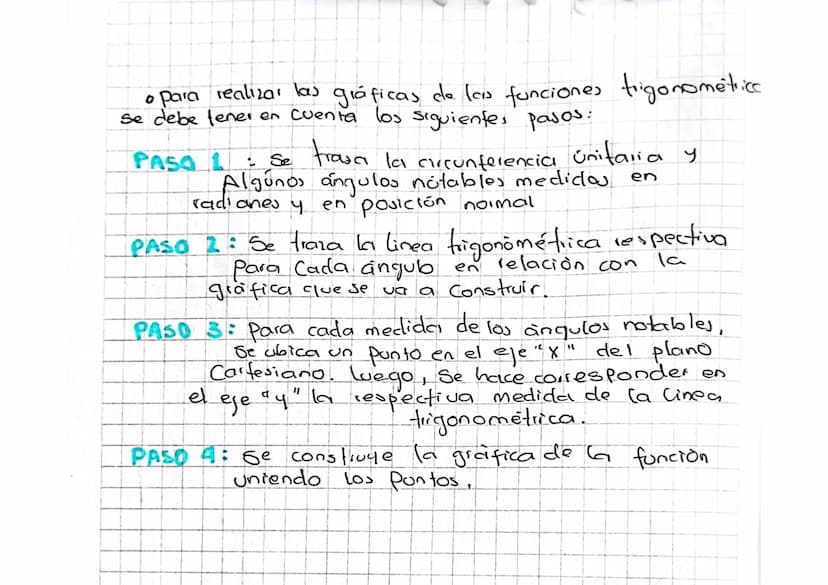 o para realizar las gráficas de las funciones trigonométric
se debe tener en cuenta los siguientes pasos:
PASO 1 : Se trasa la circunferencia únitaria y
Algúnos ángulos nótables medidas en
radianes y en posición normal
PASO 2: Se traza la linea trigonométrica respectiva
Para Cada ángulo en relación con la
gráfica que se va a Construir.
PASO 3: para cada medida de los ángulos notables,
Se ubica un punto en el eje "x" del plano
Cartesiano. luego, Se hace corresponder en
el eje "y" la respectiva medida de la linea
trigonométrica.
PASO 4: Se construye la gráfica de la función
uniendo los Puntos.